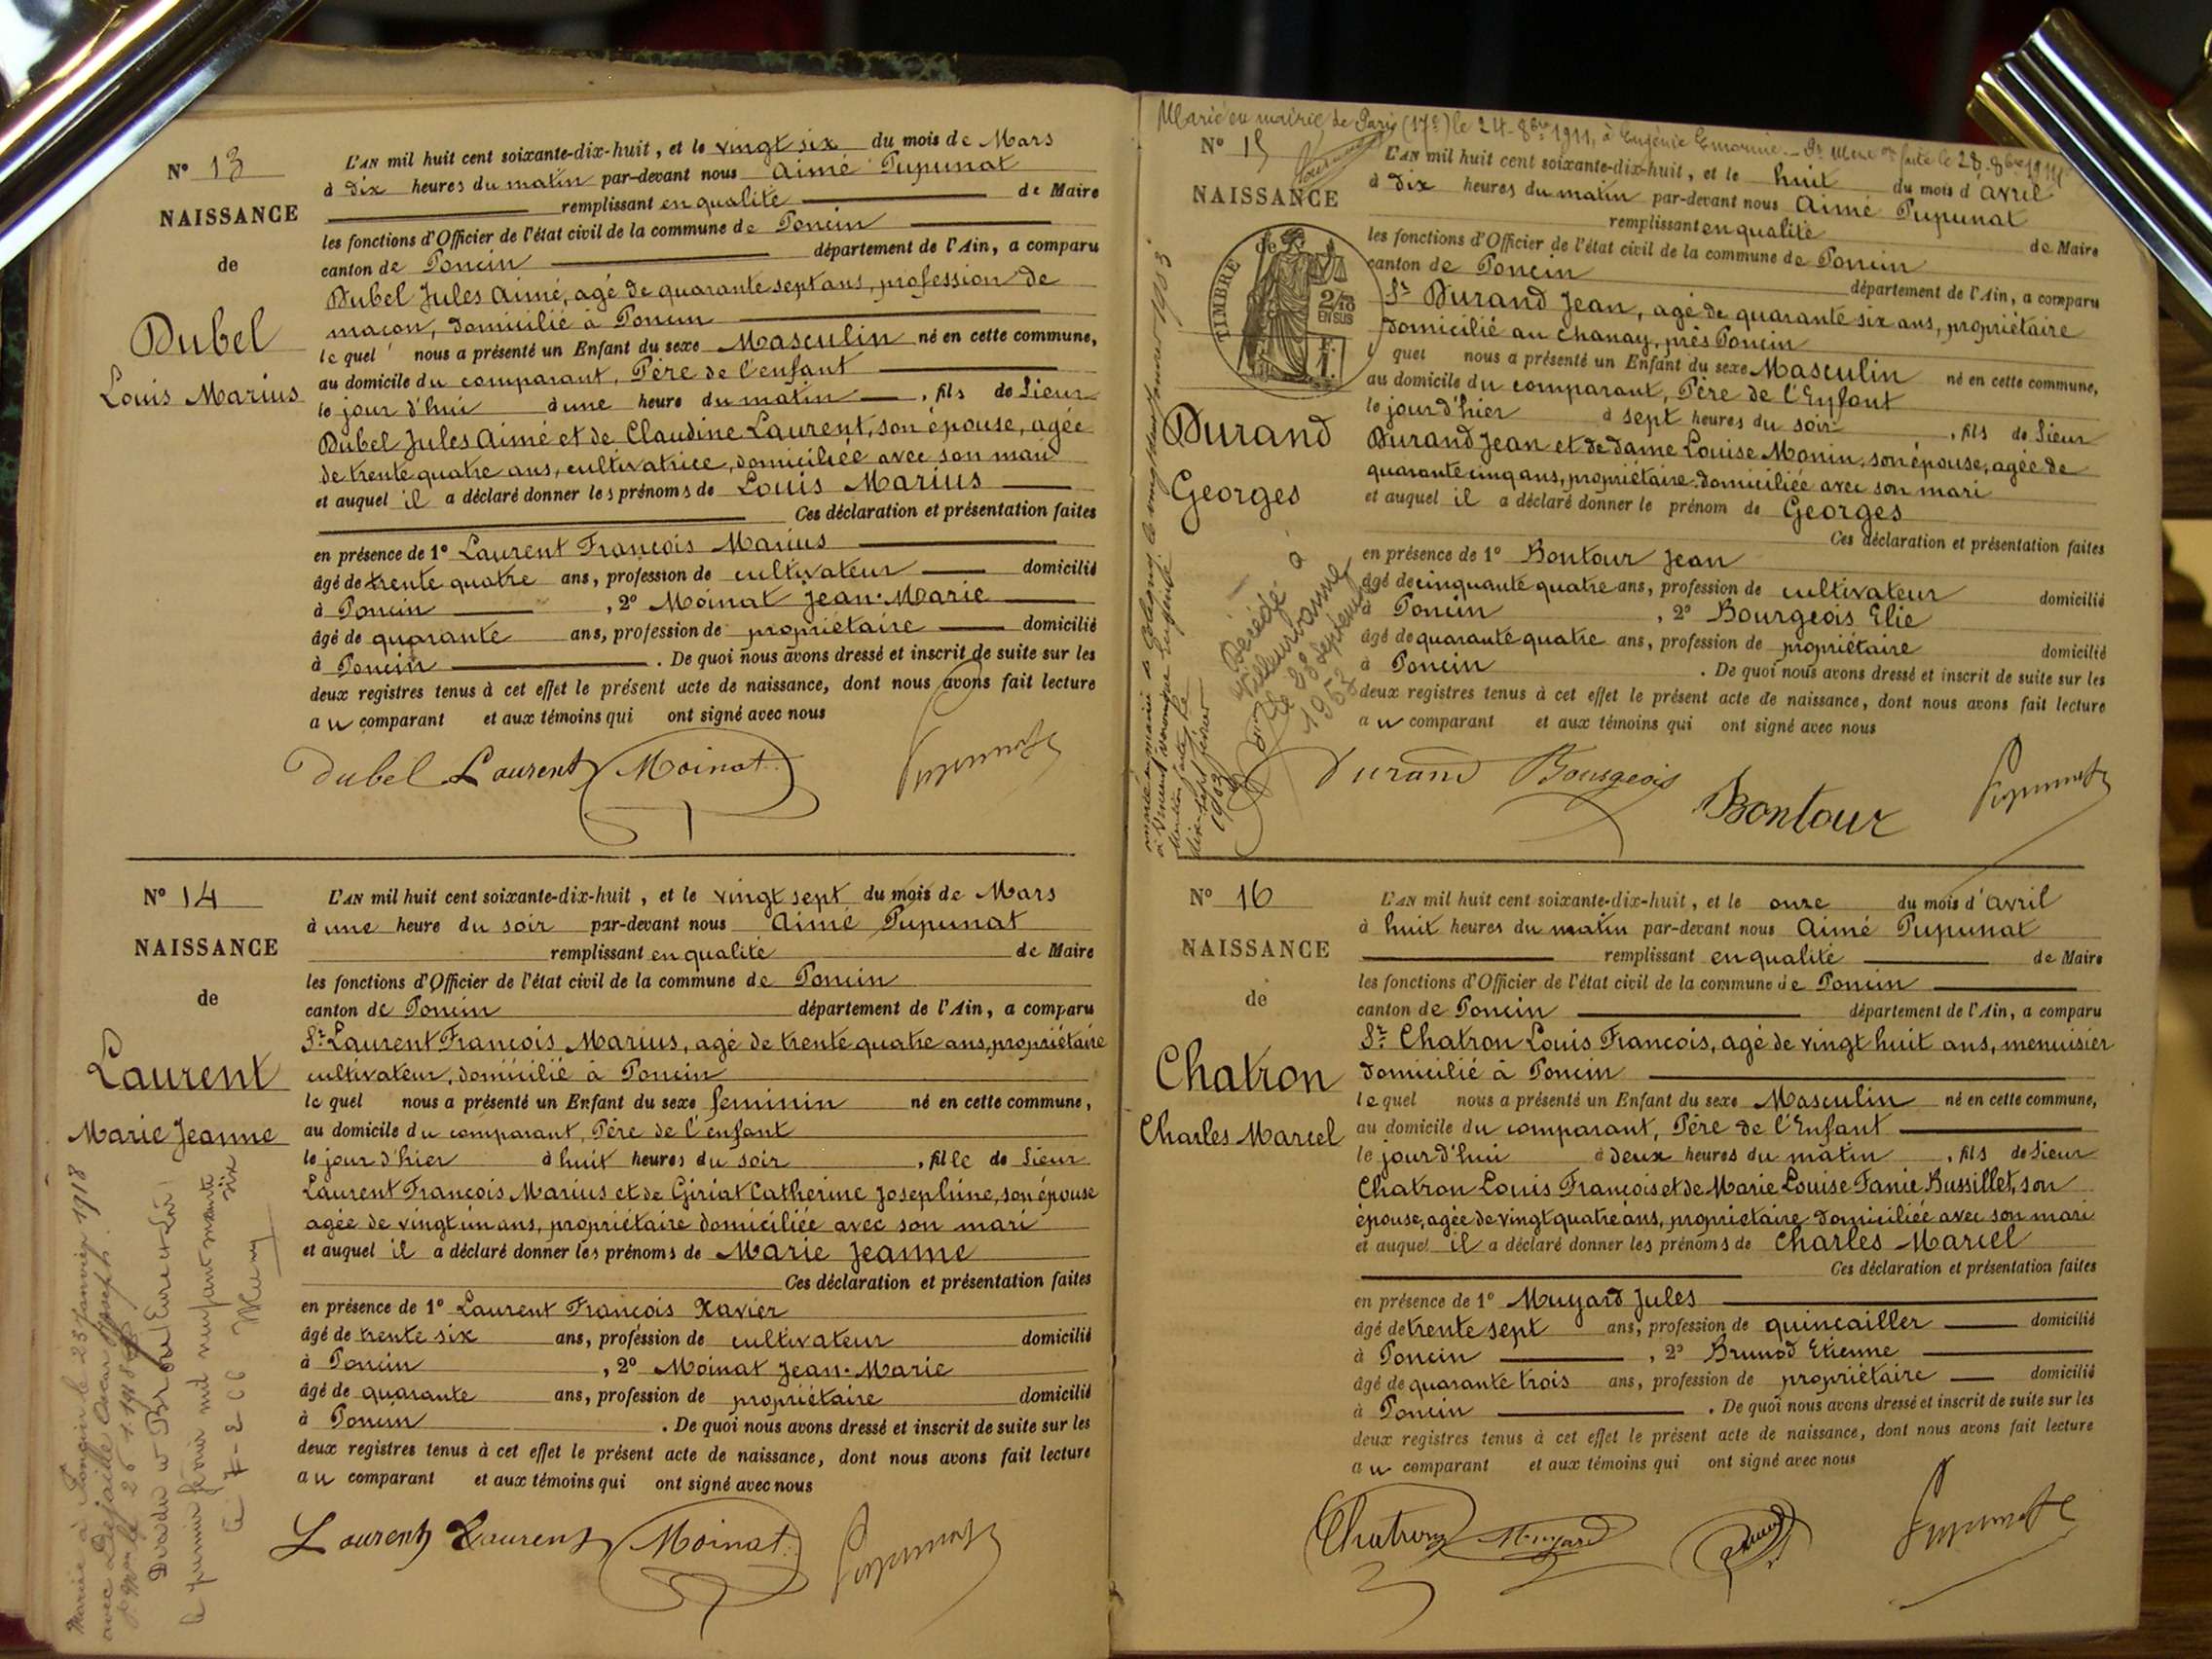 N° 13
NAISSANCE
de
Dubel
Louis Marius
L'AN mil huit cent soixante-dix-huit, et le vingt six du mois de Mars
à dix heures du matin par-devant nous Aimé Pupunat
remplissant en qualité de Maire
les fonctions d'Officier de l'état civil de la commune de Poncin
canton de Poncin département de l'Ain, a comparu
Dubel Jules Aimé, agé de quarante sept ans, profession de
maçon, domicilié à Poncin
le quel nous a présenté un Enfant du sexe Masculin né en cette commune,
au domicile du comparant, Père de l'enfant
le jour d'hui à une heure du matin, fils de Sieur
Dubel Jules Aimé et de Claudine Laurent, son épouse, agée
de trente quatre ans, cultivatrice, domiciliée avec son mari
et auquel il a déclaré donner les prénoms de Louis Marius
Ces déclaration et présentation faites
en présence de 1° Laurent François Marius
âgé de trente quatre ans, profession de cultivateur domicilié
à Poncin, 2° Moinat Jean-Marie
âgé de quarante ans, profession de propriétaire domicilié
à Poncin. De quoi nous avons dressé et inscrit de suite sur les
deux registres tenus à cet effet le présent acte de naissance, dont nous avons fait lecture
au comparant et aux témoins qui ont signé avec nous
Dubel Laurent Moinat Pupunat
N° 14
NAISSANCE
de
Laurent
Marie Jeanne
Mariée à Poncin le 23 Janvier 1918
avec Dejaille Oscar Joseph.
Décédée à Brou (Eure et Loir)
le premier février mil neuf cent soixante
six
Le 7-2-66
L'AN mil huit cent soixante-dix-huit, et le vingt sept du mois de Mars
à une heure du soir par-devant nous Aimé Pupunat
remplissant en qualité de Maire
les fonctions d'Officier de l'état civil de la commune de Poncin
canton de Poncin département de l'Ain, a comparu
Sr Laurent François Marius, agé de trente quatre ans, propriétaire
cultivateur, domicilié à Poncin
le quel nous a présenté un Enfant du sexe feminin né en cette commune,
au domicile du comparant, Père de l'enfant
le jour d'hier à huit heures du soir, fille de Sieur
Laurent François Marius et de Giriat Catherine Josephine, son épouse
agée de vingt un ans, propriétaire domiciliée avec son mari
et auquel il a déclaré donner les prénoms de Marie Jeanne
Ces déclaration et présentation faites
en présence de 1° Laurent François Xavier
âgé de trente six ans, profession de cultivateur domicilié
à Poncin, 2° Moinat Jean-Marie
âgé de quarante ans, profession de propriétaire domicilié
à Poncin. De quoi nous avons dressé et inscrit de suite sur les
deux registres tenus à cet effet le présent acte de naissance, dont nous avons fait lecture
au comparant et aux témoins qui ont signé avec nous
Laurent Laurent Moinat Pupunat
Marié en mairie de Paris (17e) le 24 - 8bre 1911, à Eugénie faite le 28 8bre 1911
N° 15
NAISSANCE
de
TIMBRE
2/10
EN SUS
Durand
Georges
Décédé à
Villeurbanne
le 28 septembre
1953
dix-sept février
1903
L'AN mil huit cent soixante-dix-huit, et le huit du mois d'avril
à dix heures du matin par-devant nous Aimé Pupunat
remplissant en qualité de Maire
les fonctions d'Officier de l'état civil de la commune de Poncin
canton de Poncin département de l'Ain, a comparu
Sr Durand Jean, agé de quarante six ans, propriétaire
domicilié au Chanay, près Poncin
le quel nous a présenté un Enfant du sexe Masculin né en cette commune,
au domicile du comparant, Père de l'Enfant
le jour d'hier à sept heures du soir, fils de Sieur
Durand Jean et de dame Louise Monin, son épouse, agée de
quarante cinq ans, propriétaire domiciliée avec son mari
et auquel il a déclaré donner le prénom de Georges
Ces déclaration et présentation faites
en présence de 1° Bontour Jean
âgé de cinquante quatre ans, profession de cultivateur domicilié
à Poncin, 2° Bourgeois Elie
âgé de quarante quatre ans, profession de propriétaire domicilié
à Poncin. De quoi nous avons dressé et inscrit de suite sur les
deux registres tenus à cet effet le présent acte de naissance, dont nous avons fait lecture
au comparant et aux témoins qui ont signé avec nous
Durand Bourgeois Bontour Pupunat
N° 16
NAISSANCE
de
Chatron
Charles Marcel
L'AN mil huit cent soixante-dix-huit, et le onze du mois d'avril
à huit heures du matin par-devant nous Aimé Pupunat
remplissant en qualité de Maire
les fonctions d'Officier de l'état civil de la commune de Poncin
canton de Poncin département de l'Ain, a comparu
Sr Chatron Louis François, agé de vingt huit ans, menuisier
domicilié à Poncin
le quel nous a présenté un Enfant du sexe Masculin né en cette commune,
au domicile du comparant, Père de l'Enfant
le jour d'hui à deux heures du matin, fils de Sieur
Chatron Louis François et de Marie Louise Fanie Bussillet, son
épouse, agée de vingt quatre ans, propriétaire domiciliée avec son mari
et auquel il a déclaré donner les prénoms de Charles Marcel
Ces déclaration et présentation faites
en présence de 1° Muyard Jules
âgé de trente sept ans, profession de quincailler domicilié
à Poncin, 2° Brunod Etienne
âgé de quarante trois ans, profession de propriétaire domicilié
à Poncin. De quoi nous avons dressé et inscrit de suite sur les
deux registres tenus à cet effet le présent acte de naissance, dont nous avons fait lecture
au comparant et aux témoins qui ont signé avec nous
Chatron Muyard Pupunat